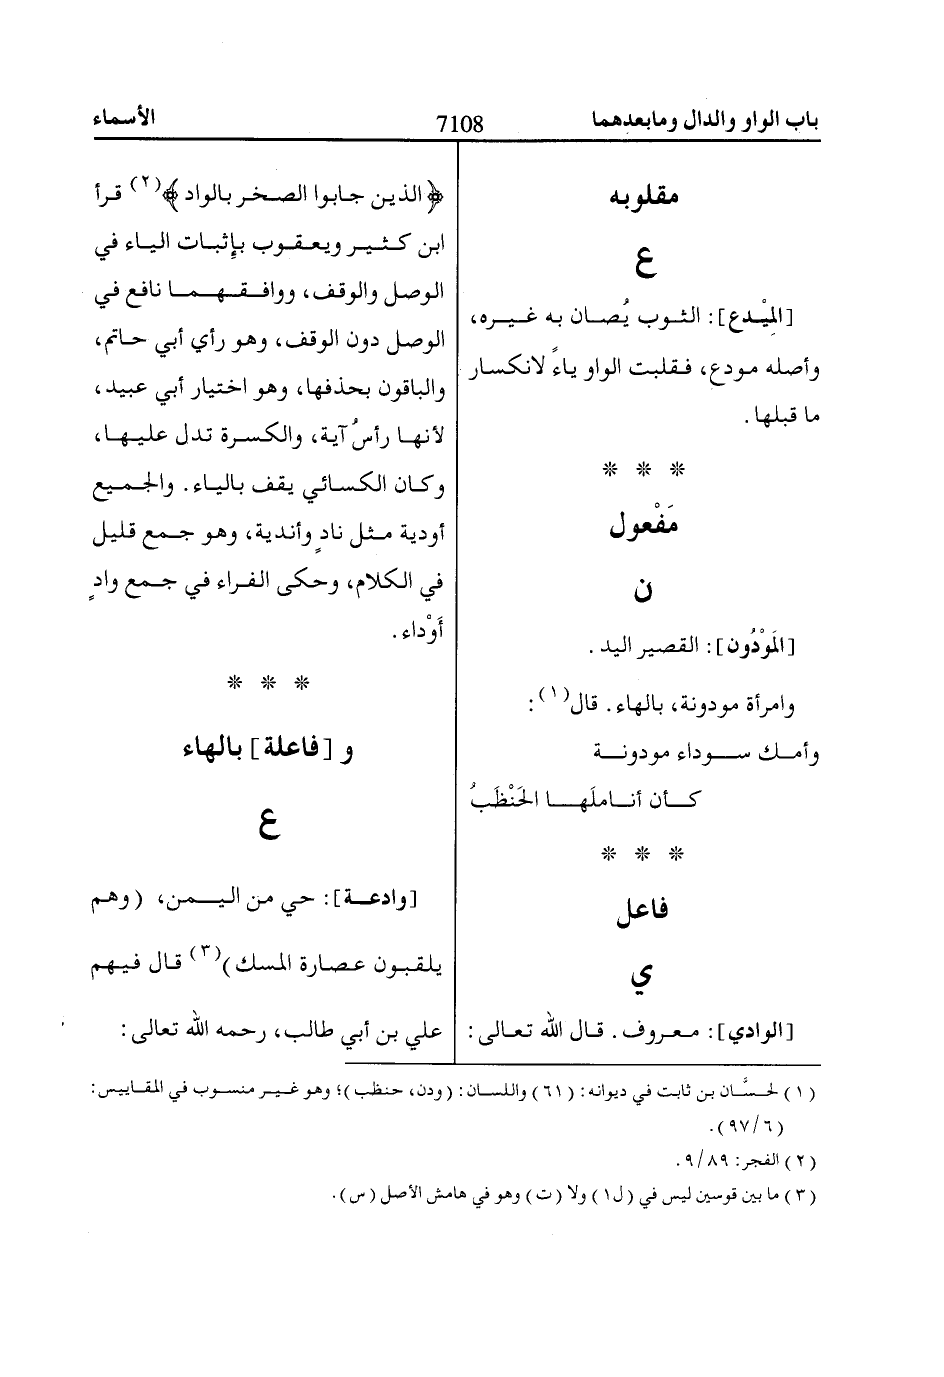 باب الواو والدال ومابعدهما 7108 الأسماء
مقلوبه
ع
[المِيْدع]: الثوب يُصان به غيره،
وأصله مودع، فقلبت الواو ياءً لانكسار
ما قبلها.
* * *
مَفْعول
ن
[المَوْدُون]: القصير اليد.
وامرأة مودونة، بالهاء. قال(١):
وأمك سوداء مودونة
كأن أناملَها الحَنْظَبُ
* * *
فاعل
ي
[الوادي]: معروف. قال الله تعالى:
﴿الذين جابوا الصخر بالواد﴾(٢) قرأ
ابن كثير ويعقوب بإثبات الياء في
الوصل والوقف، ووافقهما نافع في
الوصل دون الوقف، وهو رأي أبي حاتم،
والباقون بحذفها، وهو اختيار أبي عبيد،
لأنها رأسُ آية، والكسرة تدل عليها،
وكان الكسائي يقف بالياء. والجميع
أودية مثل نادٍ وأندية، وهو جمع قليل
في الكلام، وحكى الفراء في جمع وادٍ
أَوْداء.
* * *
و [فاعلة] بالهاء
ع
[وادعة]: حي من اليمن، (وهم
يلقبون عصارة المسك)(٣) قال فيهم
علي بن أبي طالب، رحمه الله تعالى:
(١) لحسَّان بن ثابت في ديوانه: (٦١) واللسان: (ودن، حنظب)؛ وهو غير منسوب في المقاييس:
(٩٧/٦).
(٢) الفجر: ٩/٨٩.
(٣) ما بين قوسين ليس في (ل١) ولا (ت) وهو في هامش الأصل (س).